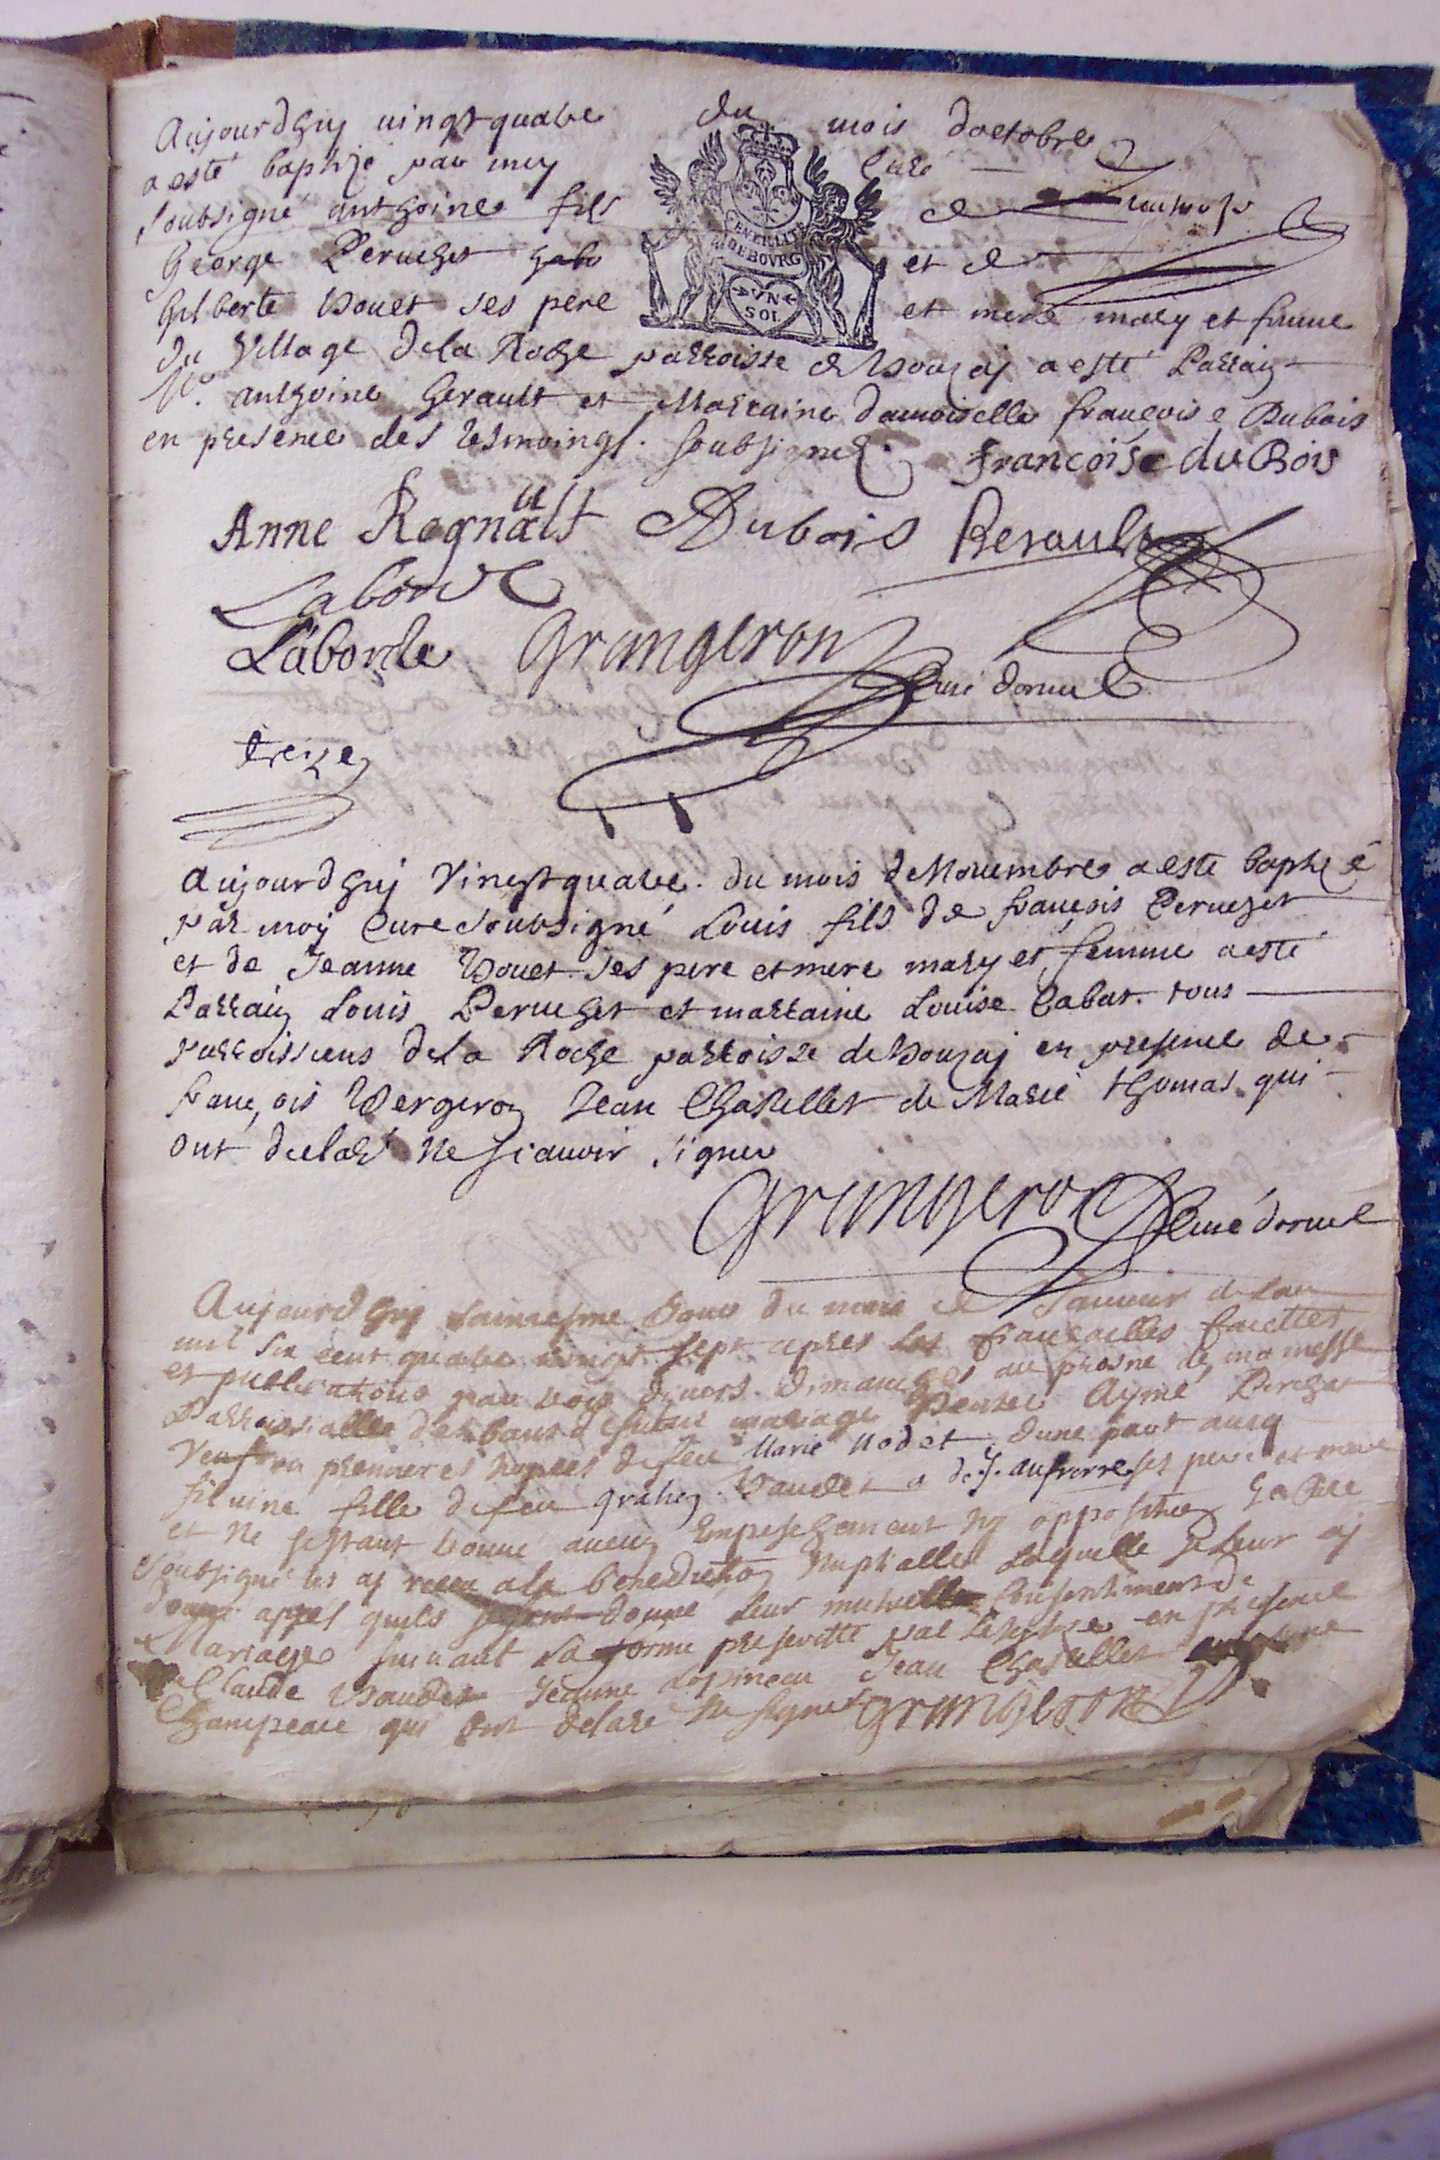 Aujourdhuy vingt quatre du mois doctobre
a esté baptizé par moy Curé
soubsigné anthoine fils de
George Peruchet et de
Gilberte Douet ses pere et mere mary et femme
GENERALITE
DE BOVRG
VN
SOL
du Village dela Roche parroisse de a esté Parrain
Mr. anthoine Gerault et Marraine damoiselle françoise Dubois
en presence des tesmoings soubsignez. francoise du Bois
Anne Regnault Dubois Berault
Laborde
Laborde Grangeron Curé dorval
treize
Aujourdhuy Vingt quatre du mois de Novembre a esté baptizé
par moy Curé soubsigné Louis fils de françois Peruchet
et de Jeanne Douet ses pere et mere mary et femme a esté
Parrain Louis Peruchet et marraine Louise Cabat tous
parroissiens dela Roche parroisse de en presence de
françois Bergeron Jean Chastellet de Marie thomas qui
ont declaré ne sçauoir signer
Grangeron Curé dorval
Aujourdhuy du mois de Januier de lan
mil six cent quatre vingt sept apres les fiancailles faittes
et publications par trois diuers dimanches au prosne de ma messe
Parroissialle des bans du futur mariage Aymé
Veuf en premieres nopces de feu Marie Nodot dune part aueq
fille de feu et de J. ses pere et mere
et ne sestant trouué aucun Empeschement ny opposition Je Curé
soubsigné les ay receu a la benediction Nuptialle laquelle Je leur ay
donné apres quils se sont donné leur mutuelle Consentiment de
Mariage suiuant la forme prescritte par Leglise en presence
de Claude Jeanne Lospineau Jean Chastellet
Champeau qui ont declaré ne signer Grangeron